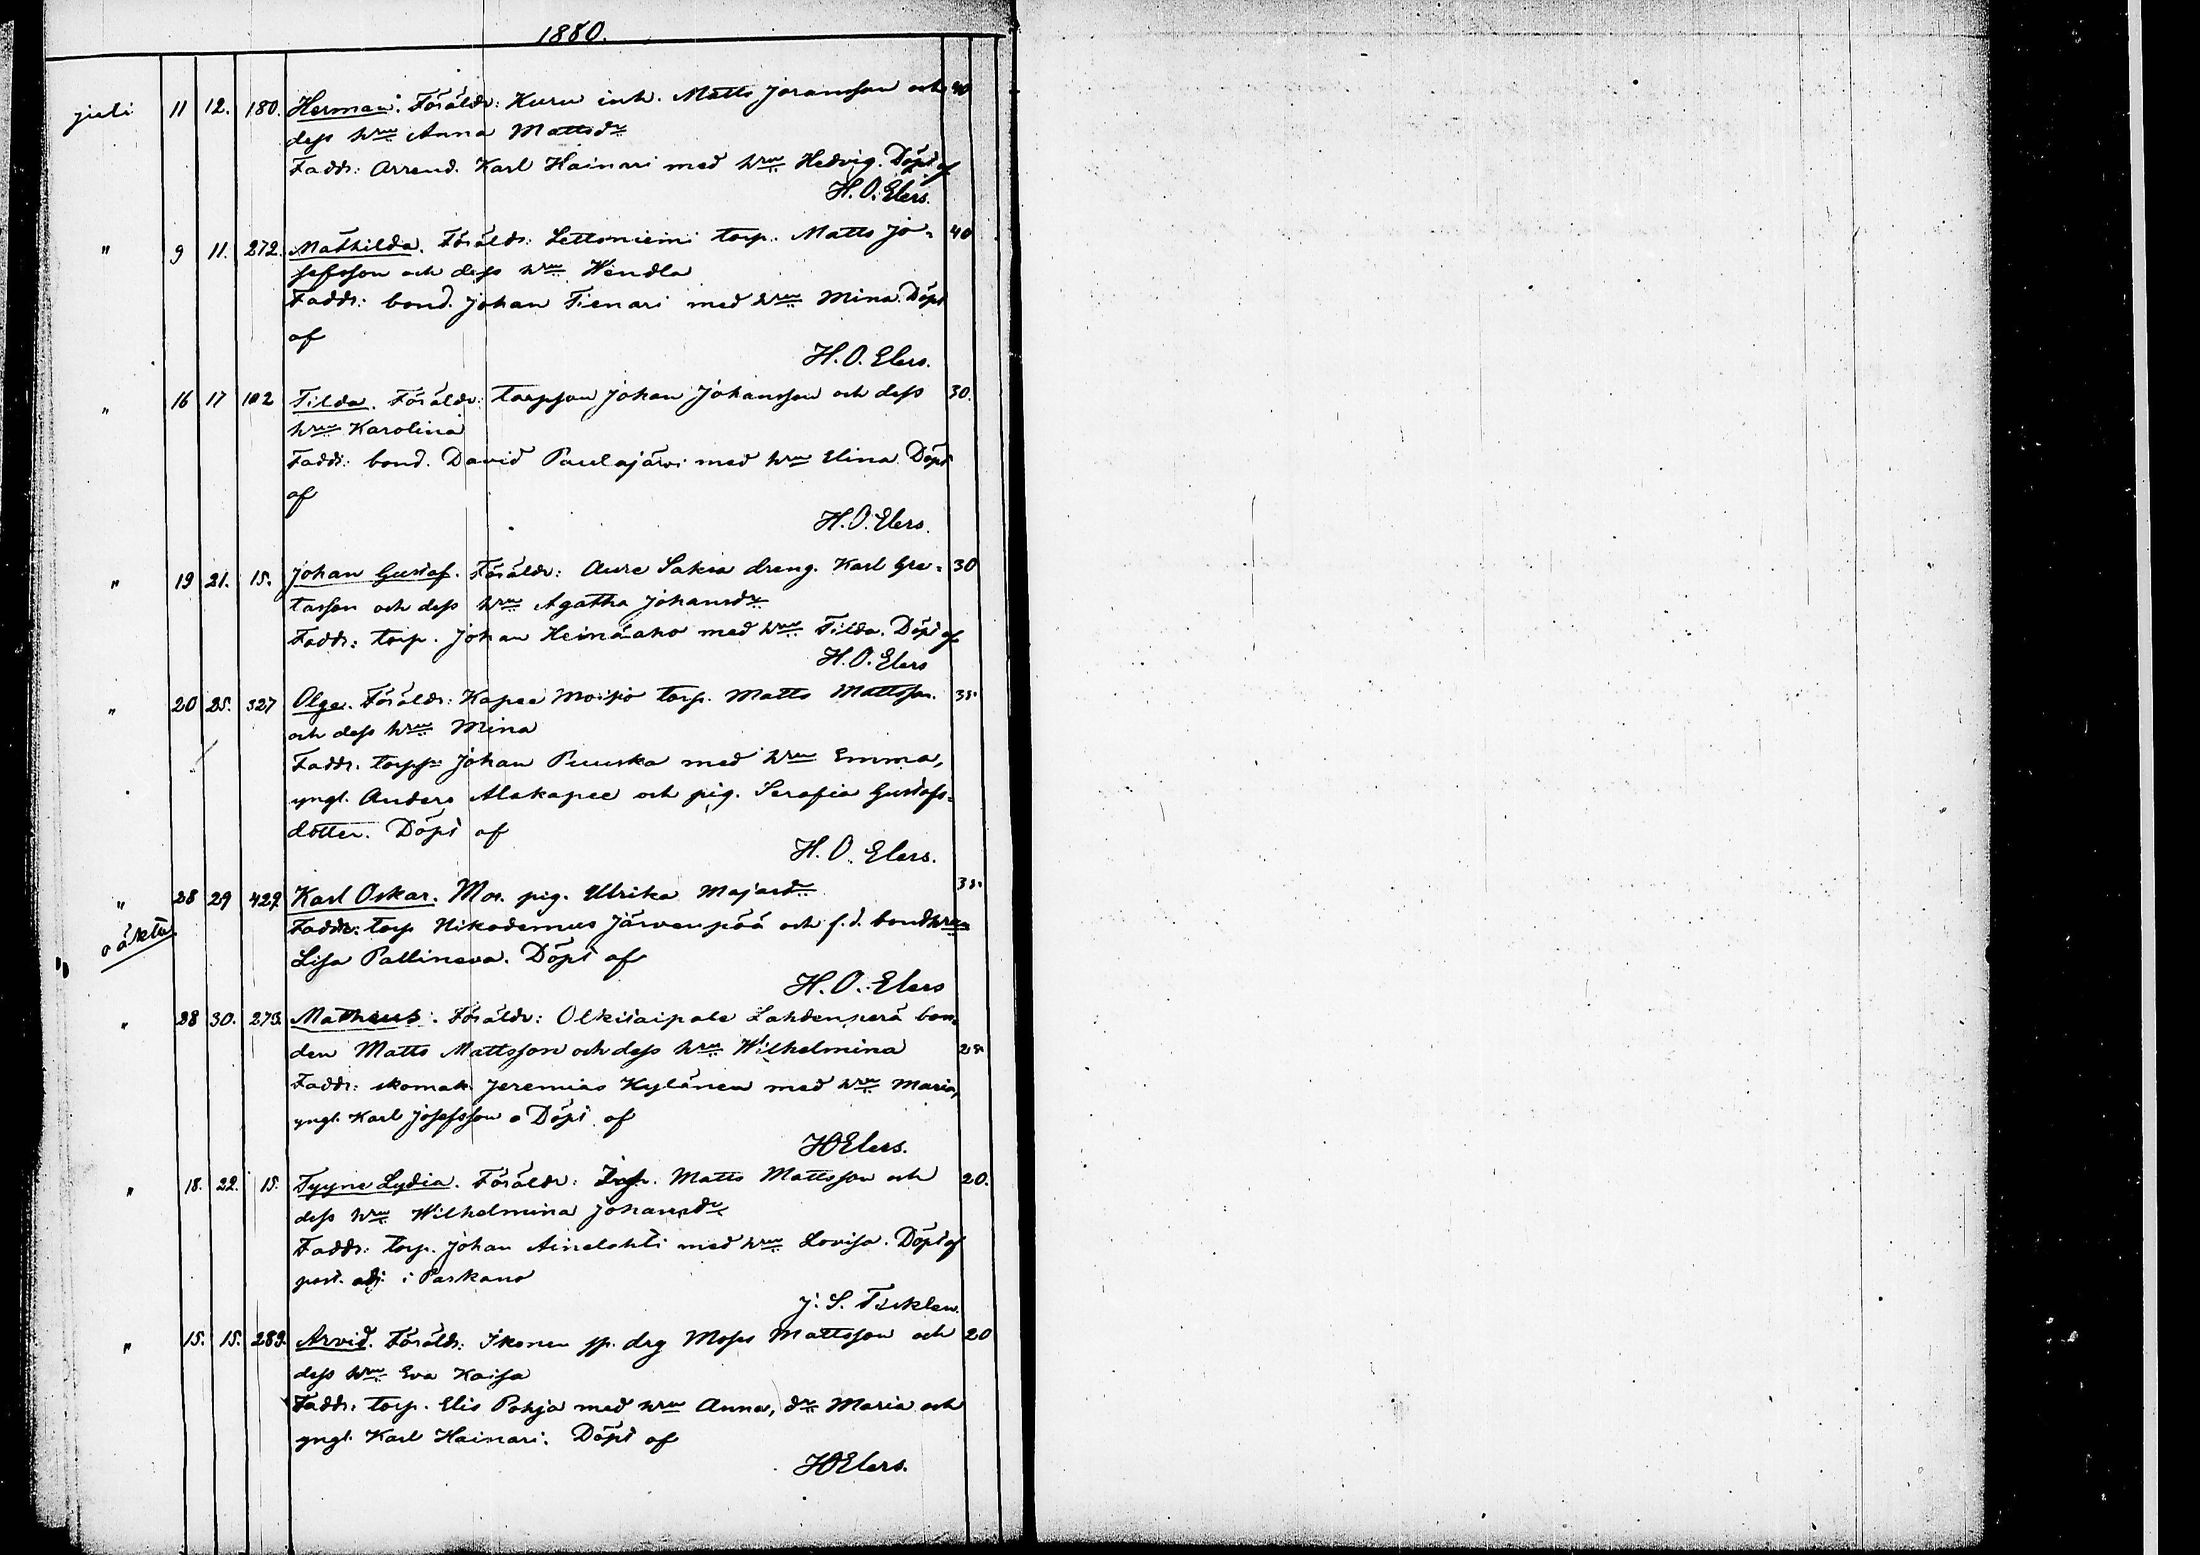 1880.
juli 11 12. 180. Herman. Föräldr: Kuru inh. Matts Joransson och 40
dess hru Anna Mattsdr
Faddr: Arrend. Karl Hainari med hru Hedvig. Döpt af
H. O. Elers.
" 9 11. 272. Mathilda. Föräldr: Lettoniemi torp. Matts Jo= 40
sefsson och dess hru Wendla
Faddr: bond. Johan Tienari med hru Mina. Döpt
af
H. O. Elers.
" 16 17 102 Tilda. Föräldr: torpson Johan Johansson och dess 30.
hru Karolina
Faddr: bond. David Paulajärvi med hru Elina. Döpt
af
H. O. Elers.
" 19 21. 15. Johan Gustaf. Föräldr: Aure Sakia dreng. Karl Gre= 30
tasson och dess hru Agatha Johansdr
Faddr: torp. Johan Heinäaho med hru Tilda. Döpt af
H. O. Elers
" 20 25. 327 Olga. Föräldr: Kapee Moisio torp. Matts Mattsson. 35
och dess hru Mina
Faddr. torpp Johan Puuska med hru Emma,
yngl. Anders Alakapee och pig. Serafia Gustafs=
dotter. Döpt af
H. O. Elers.
" 28 29 429. Karl Oskar. Mor. pig. Ulrika Majasdr 35
oäkta Faddr: torp Nikodemus Järvenpää och f.d. bondhru
Lisa Pallineva. Döpt af
H. O. Elers
" 28 30. 273. Matheus. Föräldr: Olkitaipale Lahdenperä bon=
den Matts Mattsson och dess hru Wilhelmina 25
Faddr: skomak. Jeremias Kylänen med hru Maria,
yngl. Karl Josefsson. Döpt af
HOElers.
" 18. 22. 15. Tyyne Lydia. Föräldr: Matts Mattsson och 20.
dess hru Wilhelmina Johansdr
Faddr: torp. Johan Ainelahti med hru Lovisa. Döpt af
past. adj. i Parkano
J. S.
" 15. 15. 289. Arvid. Föräldr: Ikonen sp. drg Moses Mattsson och 20
dess hru Eva Kaisa
Faddr. torp. Elis Pohja med hru Anna, dr Maria och
yngl. Karl Hainari. Döpt af
HOElers.